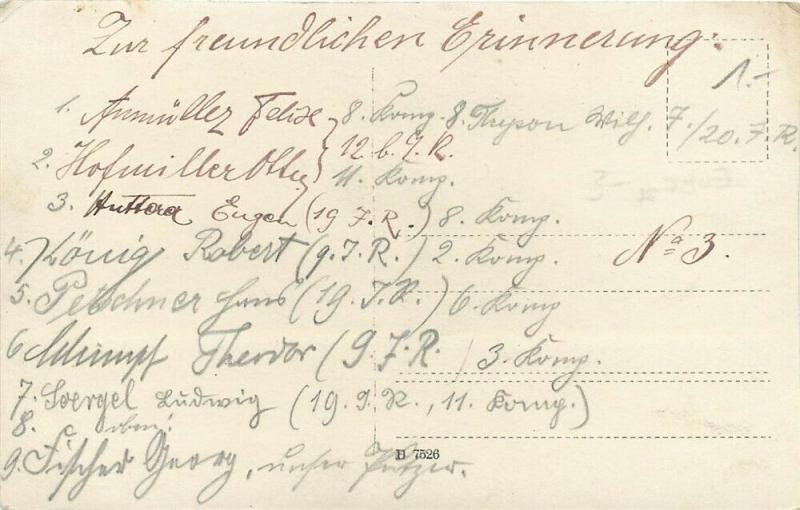 Zur freundlichen Erinnerung.
1.-
1. Anmüller Felix 8. Komp. 8. Thyson Wilh. 7./20. I. R.
12. b. I. R.
2. Hofmiller Otto 11. Komp.
3. Huttera Eugen (19 I. R.) 8. Komp.
No 3.
4. König Robert (9. I. R.) 2. Komp.
5. Petschner Hans (19. I. R.) 6. Komp
6 Theodor (9. I. R.) 3. Komp.
7. Soergel Ludwig (19. I. R., 11. Komp.)
8. oben!
9. Fischer Georg, unser Putzer.
H 7526